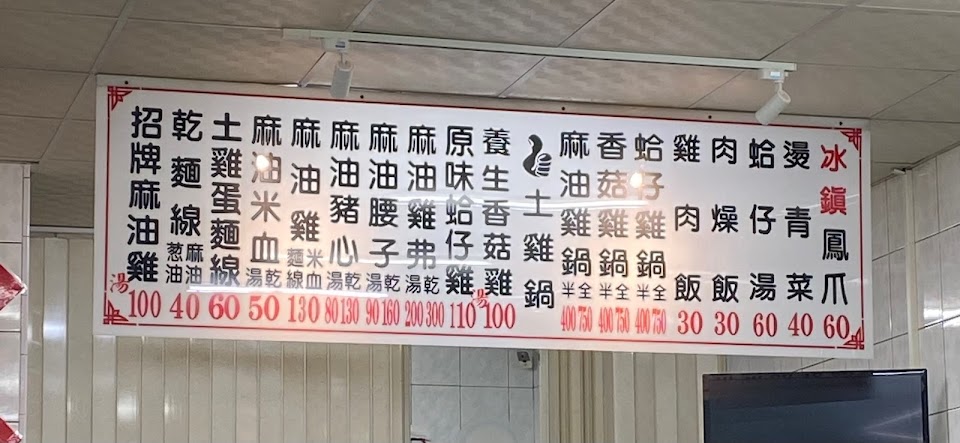 招牌麻油雞 湯 100
乾麵線 葱油 麻油 40
土雞蛋麵線 60
麻油米血 湯 乾 50
麻油雞 麵線 米血 130
麻油豬心 湯 乾 80 130
麻油腰子 湯 乾 90 160
麻油雞弗 湯 乾 200 300
原味蛤仔雞 110
養生香菇雞 湯 100
土雞鍋
麻油雞鍋 半 全 400 750
香菇雞鍋 半 全 400 750
蛤仔雞鍋 半 全 400 750
雞肉飯 30
肉燥飯 30
蛤仔湯 60
燙青菜 40
冰鎮鳳爪 60